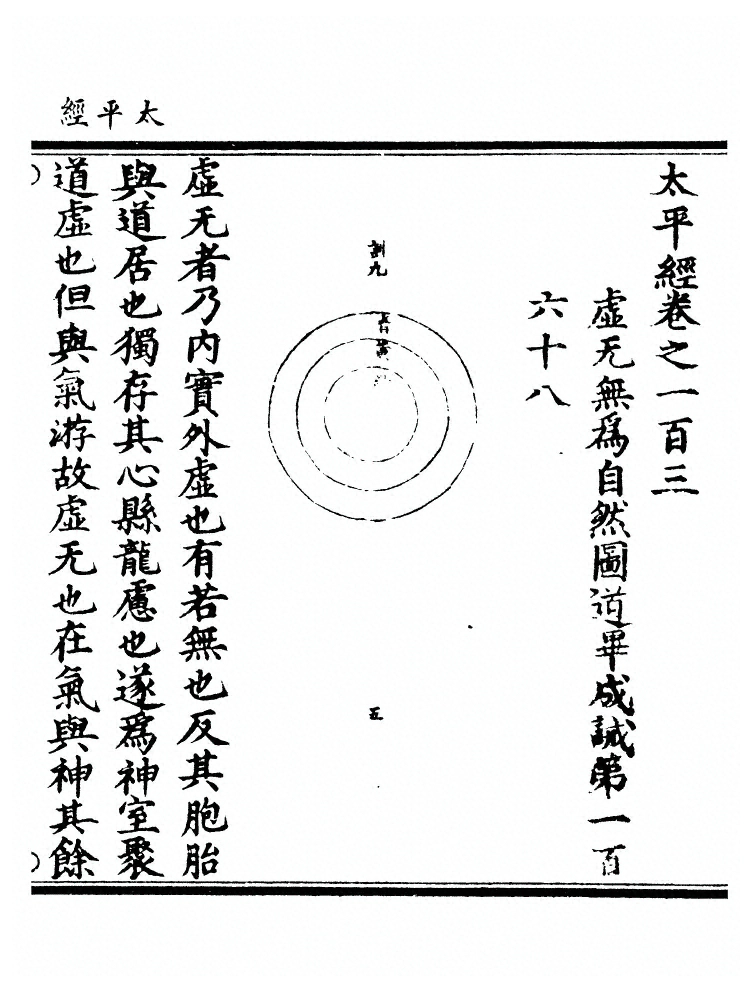 太平經
太平經卷之一百三
虛无無爲自然圖道畢成誡第一百
六十八
五
虛无者乃内實外虛也有若無也反其胞胎
與道居也獨存其心縣龍慮也遂爲神室聚
道虛也但與氣游故虛无也在氣與神其餘